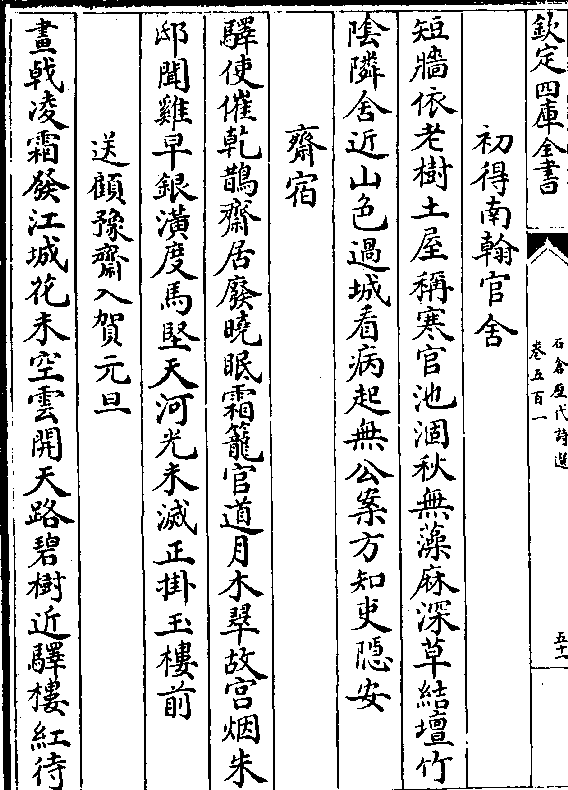 欽定四庫全書
石倉歷代詩選
卷五百一
五十一
初得南翰官舍
短牆依老樹土屋稱寒官池涸秋無藻麻深草結壇竹
陰隣舍近山色過城看病起無公案方知吏隠安
齋宿
驛使催乾鵲齋居廢曉眠霜籠官道月木翠故宫烟朱
邸聞雞早銀潢度馬堅天河光未滅正掛玉樓前
送顧豫齋入賀元旦
畫㦸凌霜發江城花未空雲開天路碧樹近驛樓紅待